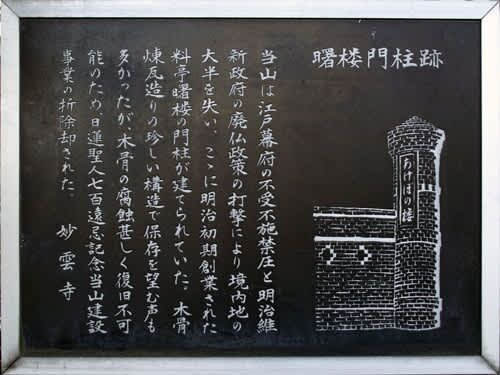 曙楼門柱跡
あけぼの楼
当山は江戸幕府の不受不施禁圧と明治維
新政府の廃仏政策の打撃により境内地の
大半を失い、こゝに明治初期創業された
料亭曙楼の門柱が建てられていた。木骨
煉瓦造りの珍しい構造で保存を望む声も
多かったが、木骨の腐蝕甚しく復旧不可
能のため、日蓮聖人七百遠忌記念当山建設
事業の折除却された。
妙雲寺